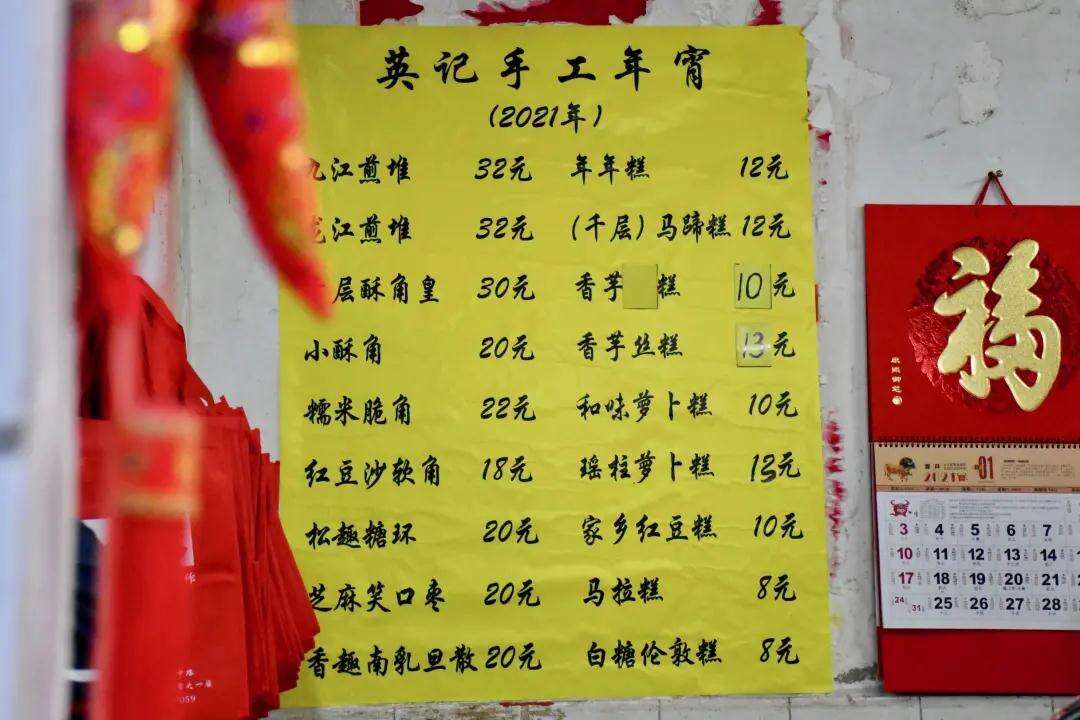 英记手工年宵
(2021年)
九江煎堆 32元 年年糕 12元
龙江煎堆 32元 (千层)马蹄糕 12元
层酥角皇 30元 香芋 糕 10元
小酥角 20元 香芋丝糕 13元
糯米脆角 22元 和味萝卜糕 10元
红豆沙软角 18元 瑶柱萝卜糕 13元
松趣糖环 20元 家乡红豆糕 10元
芝麻笑口枣 20元 马拉糕 8元
香趣南乳旦散 20元 白糖伦敦糕 8元
福
2021 01
3 4 5 6 7
10 11 12 13 14
17 18 19 20 21
24 31 25 26 27 28